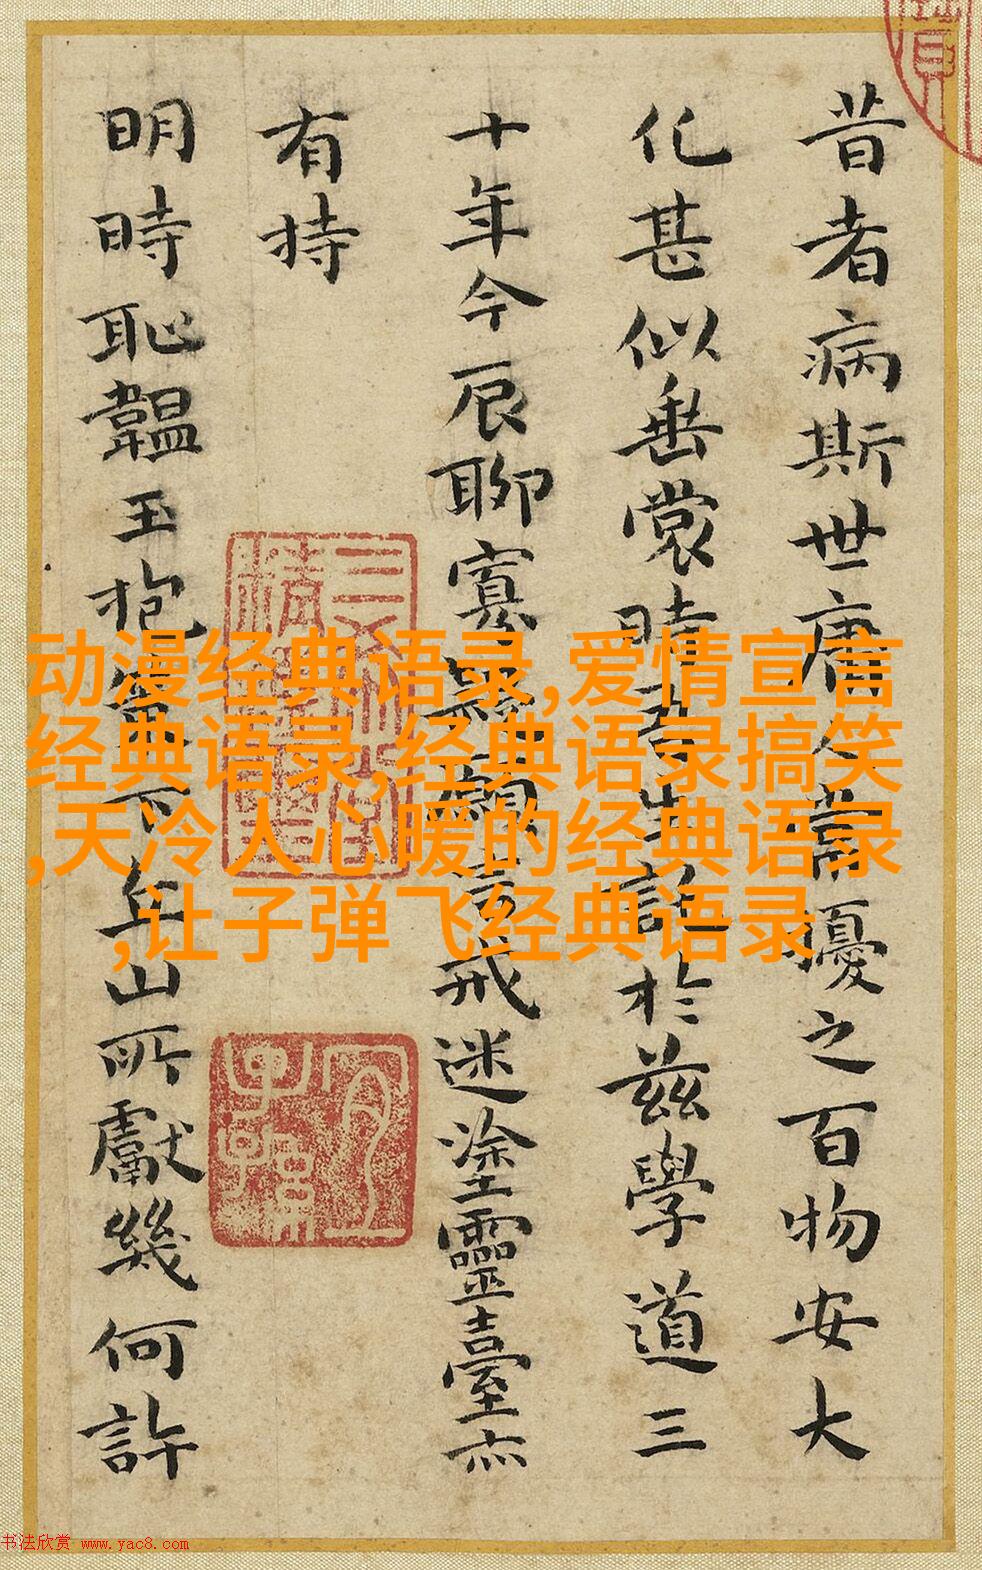 昔者病斯世庸人擾之百物安大
化甚似垂裳時吾生託於茲學道三
十年今辰聊寡言戒迷塗靈臺亦
有持
明時恥韞玉抱下丘山所獻幾何許
动漫经典语录,爱情宣言
经典语录,经典语录搞笑
,天冷人心暖的经典语录
,让子弹飞经典语录
书法欣赏 www.yac8.com